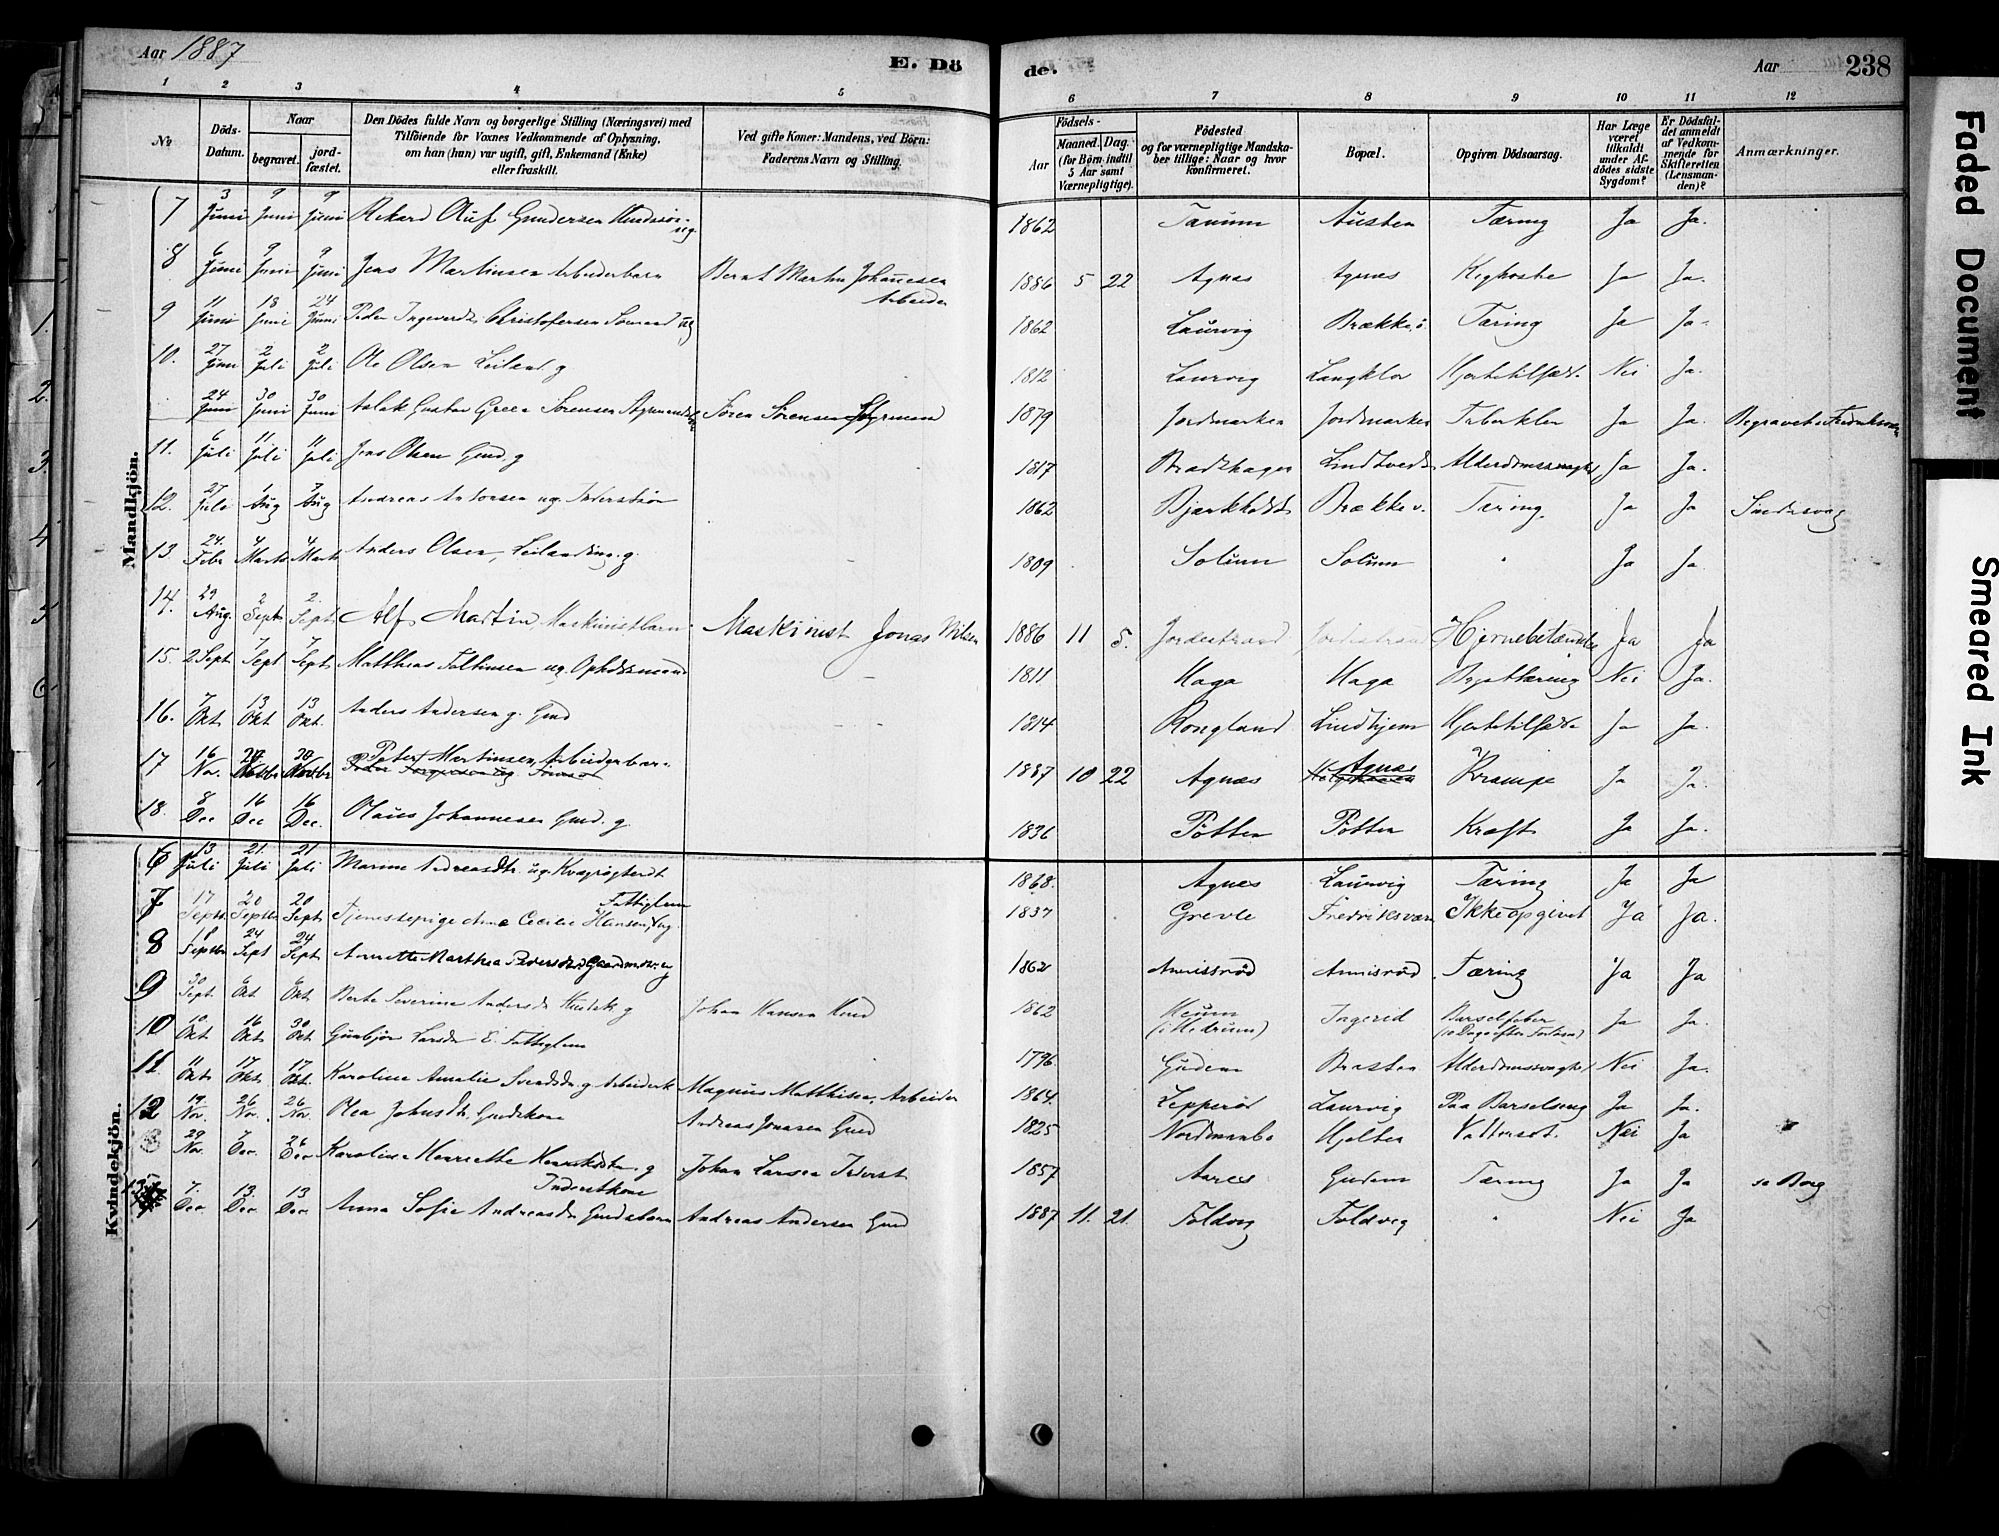 Aar 1887
E. Dö
de.
Aar
238
1 2 3 4 5
6 7 8 9 10 11 12
No
Döds-Datum.
Naar
begravet.
jord-fæstet.
Den Dödes fulde Navn og borgerlige Stilling (Næringsvei) med
Tilföiende for Voxnes Vedkommende af Oplysning,
om han (hun) var ugift, gift, Enkemand (Enke)
eller fraskilt.
Ved gifte Koner: Mandens, ved Börn:
Faderens Navn og Stilling.
Födsels-
Aar
Maaned. Dag.
(for Börn indtil
5 Aar samt
Værnepligtige).
Födested
og for værnepligtige Mandska-
ber tillige: Naar og hvor
konfirmeret.
Bopæl.
Opgiven Dödsaarsag.
Har Læge
været
tilkaldt
under Af-
dödes sidste
Sygdom?
Er Dödsfal-
det anmeldt
af Vedkom-
mende for
Skifteretten
(Lensman-
den)?
Anmærkninger.
Mandkjön.
7 3 Juni 9 Juni 9 Juni Rikard Oluf Gundersen 1862 Tanum Austen Tæring Ja Ja.
8 6 Juni 9 Juni 9 Juni Jens Martinsen Arbeiderbarn Bernt Martin Johannesen Arbeider 1886 5 22 Agnæs Agnes Kighoste Ja Ja.
9 11 Juni 18 Juni 24 Juni Peder Christofersen Sømand ug 1862 Laurvig Brække Tæring Ja Ja.
10. 27 Juni 2 Juli 2 Juli Ole Olsen Leilend. g 1812 Laurvig Langklov Hjertetilfælde Nei Ja.
24 Juni 30 Juni 30 Juni Aslak Gustav Sørensen Søren Sørensen Styrmand 1879 Jordmarken Jordmarken Tuberkler Ja Ja.
11. 6 Juli 11 Juli 11 Juli Jens Olsen Gmd. g 1817 Lindtvedt Ja Ja.
12. 27 Juli 1 Aug 7 Aug Andreas Antonsen ug. Inderst 1862 Brække Tæring. Ja Ja
13. 24. Febr 4 Marts 4 Marts Anders Olsen, g. 1809 Solum Solum " Ja Ja
14. 29 Aug. 2 Sept 2. Sept Alf Martin Maskinistbarn Maskinist Jonas Nilsen 1886 11 5. Jordestrand Jordestrand Ja Ja
15. 2 Sept 7 Sept 7 Sept. Matthias ug. Opholdsmand 1811 Haga Haga Brysttæring Nei Ja.
16. 7 Okt 13 Okt 13 Okt. Anders Andersen g. Gmd 1814 Rongland Lindhjem Hjertetilfælde Ja Ja.
17 16 Nov. Novbr Novbr Peter Martinsen, Arbeiderbarn 1887 10 22 Agnæs Agnæs Krampe Ja Ja.
18. 8 Dec 16 Dec 16 Dec. Olaus Johannesen Gmd. g. 1836 Pøtten Pøtten Kræft Ja Ja.
Kvindekjön.
6 13 Juli 21. Juli 21 Juli Marine Andreasdtr. ug. 1868. Agnes Laurvig Tæring Ja Ja
7 17 Septb 20 Septbr 20 Sept Tjenestepige Anna Cecilie Hansen, ug. Fattiglem 1837 Grevle Fredriksværn Ikke opgivet Ja Ja.
8 18 Septbr 24 Sept 24 Sept Annette Marthea Pedersdtr. ug 1862 Annisrød Annisrød Tæring Ja Ja
9 30 Sept. 6 Okt 6 Okt. Berte Severine Andersdtr g Johan Hansen 1862 (i Hedrum) Barselfeber Ja Ja.
10 10 Okt 16 Okt 30 Okt Gunbjør Larsdtr E. Fattiglem 1796 Gudem Brasten Alderdomssvaghed Nei Ja.
11 11 Okt 17 Okt 17 Okt. Karoline Amalie Svendsdtr. g Arbeiderk Magnus Matthisen, Arbeider 1864. Lepperød Laurvig Paa Barselseng Ja Ja.
12 19. Nov. 26 Nov. 26 Nov. Olea Johnsdtr. Gmdskone Andreas Jonasen Gmd 1825 Vattersot. Nei Ja
29 Nov. 7 Dec. 26 Dec Karoline Henriette g Inderstkone Johan Larsen Inderst 1857 Aares Gudem Tæring Ja Ja se Borg
13 7. Dec 13. Dec. 13 Dec. Anna Sofie Andreasdtr Gmdsbarn Andreas Andersen Gmd 1887 11. 21. Foldvig Foldvig " Nei Ja
Faded Document
Smeared Ink